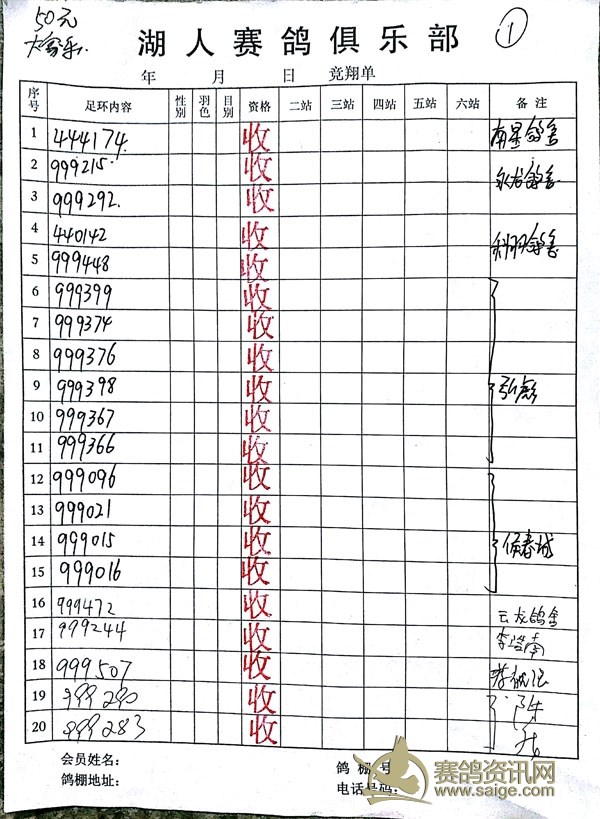 50元
大家乐
①
湖人赛鸽俱乐部
年 月 日 竞翔单
序号 足环内容 性别 羽色 目别 资格 二站 三站 四站 五站 六站 备注
1 444174 收 南星鸽舍
2 999215 收 永龙鸽舍
3 999292 收
4 440142 收 鸽舍
5 999448 收
6 999399 收
7 999374 收
8 999376 收
9 999398 收 张彪
10 999367 收
11 999366 收
12 999096 收
13 999021 收
14 999015 收 侯春城
15 999016 收
16 999472 收 云龙鸽舍
17 999244 收 李浩南
18 999507 收
19 999290 收
20 999283 收
会员姓名： 鸽棚号
鸽棚地址： 电话号码：
赛鸽资讯网
www.saige.com